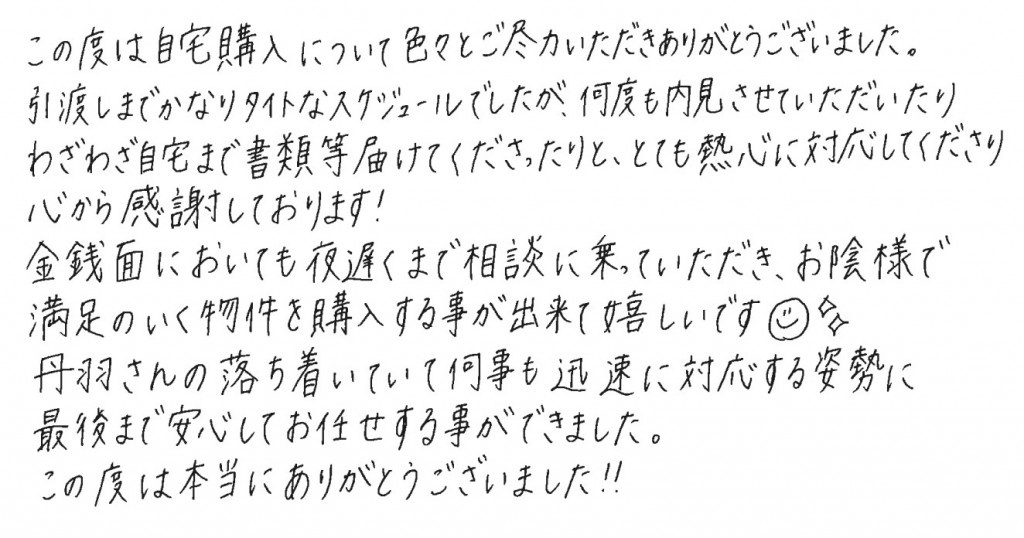 この度は自宅購入について色々とご尽力いただきありがとうございました。
引渡しまでかなりタイトなスケジュールでしたが、何度も内見させていただいたり
わざわざ自宅まで書類等届けてくださったりと、とても熱心に対応してくださり
心から感謝しております!
金銭面においても夜遅くまで相談に乗っていただき、お陰様で
満足のいく物件を購入する事が出来て嬉しいです
丹羽さんの落ち着いていて何事も迅速に対応する姿勢に
最後まで安心してお任せする事ができました。
この度は本当にありがとうございました!!